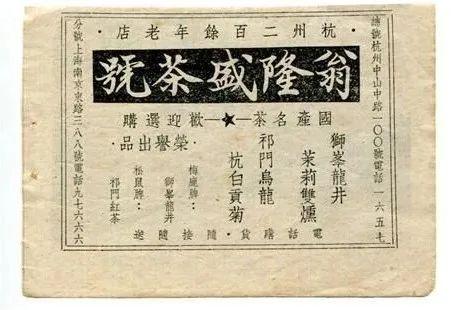 總號杭州中山中路一〇〇號電話一六五七
・杭州二百餘年老店・
翁隆盛茶號
國產名茶—★—歡迎選購
獅峯龍井
茉莉雙燻
祁門烏龍
杭白貢菊
・榮譽出品・
梅鹿牌：
獅峯龍井
松鼠牌：
祁門紅茶
電話購貨・隨接隨送
分號上海南京東路三八八號電話九七六六六